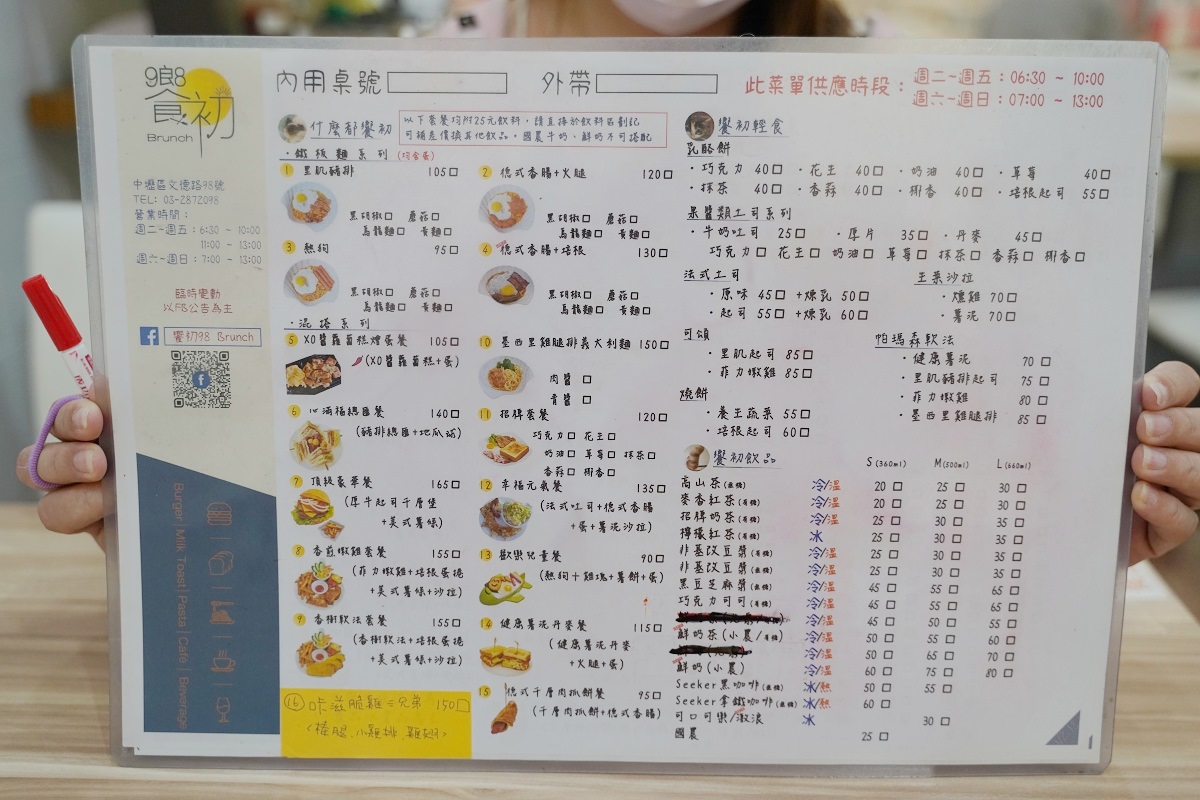 98
饗初
Brunch
中壢區文德路98號
TEL: 03-2872098
營業時間：
週二~週五：6:30 ~ 10:00
11:00 ~ 13:00
週六~週日：7:00 ~ 13:00
臨時變動
以FB公告為主
饗初98 Brunch
Burger | Milk Toast | Pasta | Café | Beverage
內用桌號
外帶
此菜單供應時段：週二~週五：06:30 ~ 10:00
週六~週日：07:00 ~ 13:00
什麼都饗初
以下套餐均附25元飲料，請直接於飲料區劃記
可補差價換其他飲品，國農牛奶、鮮奶不可搭配
・鐵板麵系列 (均含蛋)
1 里肌豬排 105□
黑胡椒□ 蘑菇□
烏龍麵□ 黃麵□
2 德式香腸+火腿 120□
黑胡椒□ 蘑菇□
烏龍麵□ 黃麵□
3 熱狗 95□
黑胡椒□ 蘑菇□
烏龍麵□ 黃麵□
4 德式香腸+培根 130□
黑胡椒□ 蘑菇□
烏龍麵□ 黃麵□
・混搭系列
5 XO醬蘿蔔糕燴蛋餐 105□
(XO醬蘿蔔糕+蛋)
6 心滿福總匯餐 140□
(豬排總匯+地瓜薯)
7 頂級豪華餐 165□
(厚牛起司千層堡
+美式薯條)
8 香煎嫩雞套餐 155□
(菲力嫩雞+培根蛋捲
+美式薯條+沙拉)
9 香榭軟法套餐 155□
(香榭軟法+培根蛋捲
+美式薯條+沙拉)
16 咔滋脆雞三兄弟 150□
(棒腿、小雞排、雞翅)
10 墨西里雞腿排義大利麵 150□
肉醬 □
青醬 □
11 招牌套餐 120□
巧克力□ 花生□
奶油□ 草莓□ 抹茶□
香蒜□ 椒香□
12 幸福元氣餐 135□
(法式吐司+德式香腸
+蛋+薯泥沙拉)
13 歡樂兒童餐 90□
(熱狗+雞塊+薯餅+蛋)
14 健康薯泥丹麥餐 115□
(健康薯泥丹麥
+火腿+蛋)
15 德式千層肉抓餅餐 95□
(千層肉抓餅+德式香腸)
饗初輕食
乳酪餅
・巧克力 40□ ・花生 40□ ・奶油 40□ ・草莓 40□
・抹茶 40□ ・香蒜 40□ ・椒香 40□ ・培根起司 55□
果醬類工司系列
・牛奶吐司 25□ ・厚片 35□ ・丹麥 45□
巧克力□ 花生□ 奶油□ 草莓□ 抹茶□ 香蒜□ 椒香□
法式工司
・原味 45□ +煉乳 50□
・起司 55□ +煉乳 60□
生菜沙拉
・燻雞 70□
・薯泥 70□
可頌
・里肌起司 85□
・菲力嫩雞 85□
帕瑪森軟法
・健康薯泥 70 □
・里肌豬排起司 75 □
・菲力嫩雞 80 □
・墨西里雞腿排 85 □
燒餅
・養生蔬菜 55□
・培根起司 60□
饗初飲品 S (360ml) M (500ml) L (660ml)
高山茶(無糖) 冷/溫 20 □ 25 □ 30 □
麥香紅茶(有糖) 冷/溫 20 □ 25 □ 30 □
招牌奶茶(有糖) 冷/溫 25 □ 30 □ 35 □
檸檬紅茶(有糖) 冰 25 □ 30 □ 35 □
非基改豆漿(有糖) 冷/溫 25 □ 30 □ 35 □
非基改豆漿(無糖) 冷/溫 25 □ 30 □ 35 □
黑豆芝麻漿(無糖) 冷/溫 45 □ 55 □ 65 □
巧克力可可(有糖) 冷/溫 45 □ 55 □ 65 □
冷/溫 45 □ 50 □ 55 □
鮮奶茶(小農/有糖) 冷/溫 50 □ 55 □ 60 □
冷/溫 50 □ 65 □ 70 □
鮮奶(小農) 冷/溫 60 □ 75 □ 80 □
Seeker黑咖啡(無糖) 冰/熱 50 □ 55 □
Seeker拿鐵咖啡(無糖) 冰/熱 60 □
可口可樂/激浪 冰 30 □
國農 25 □